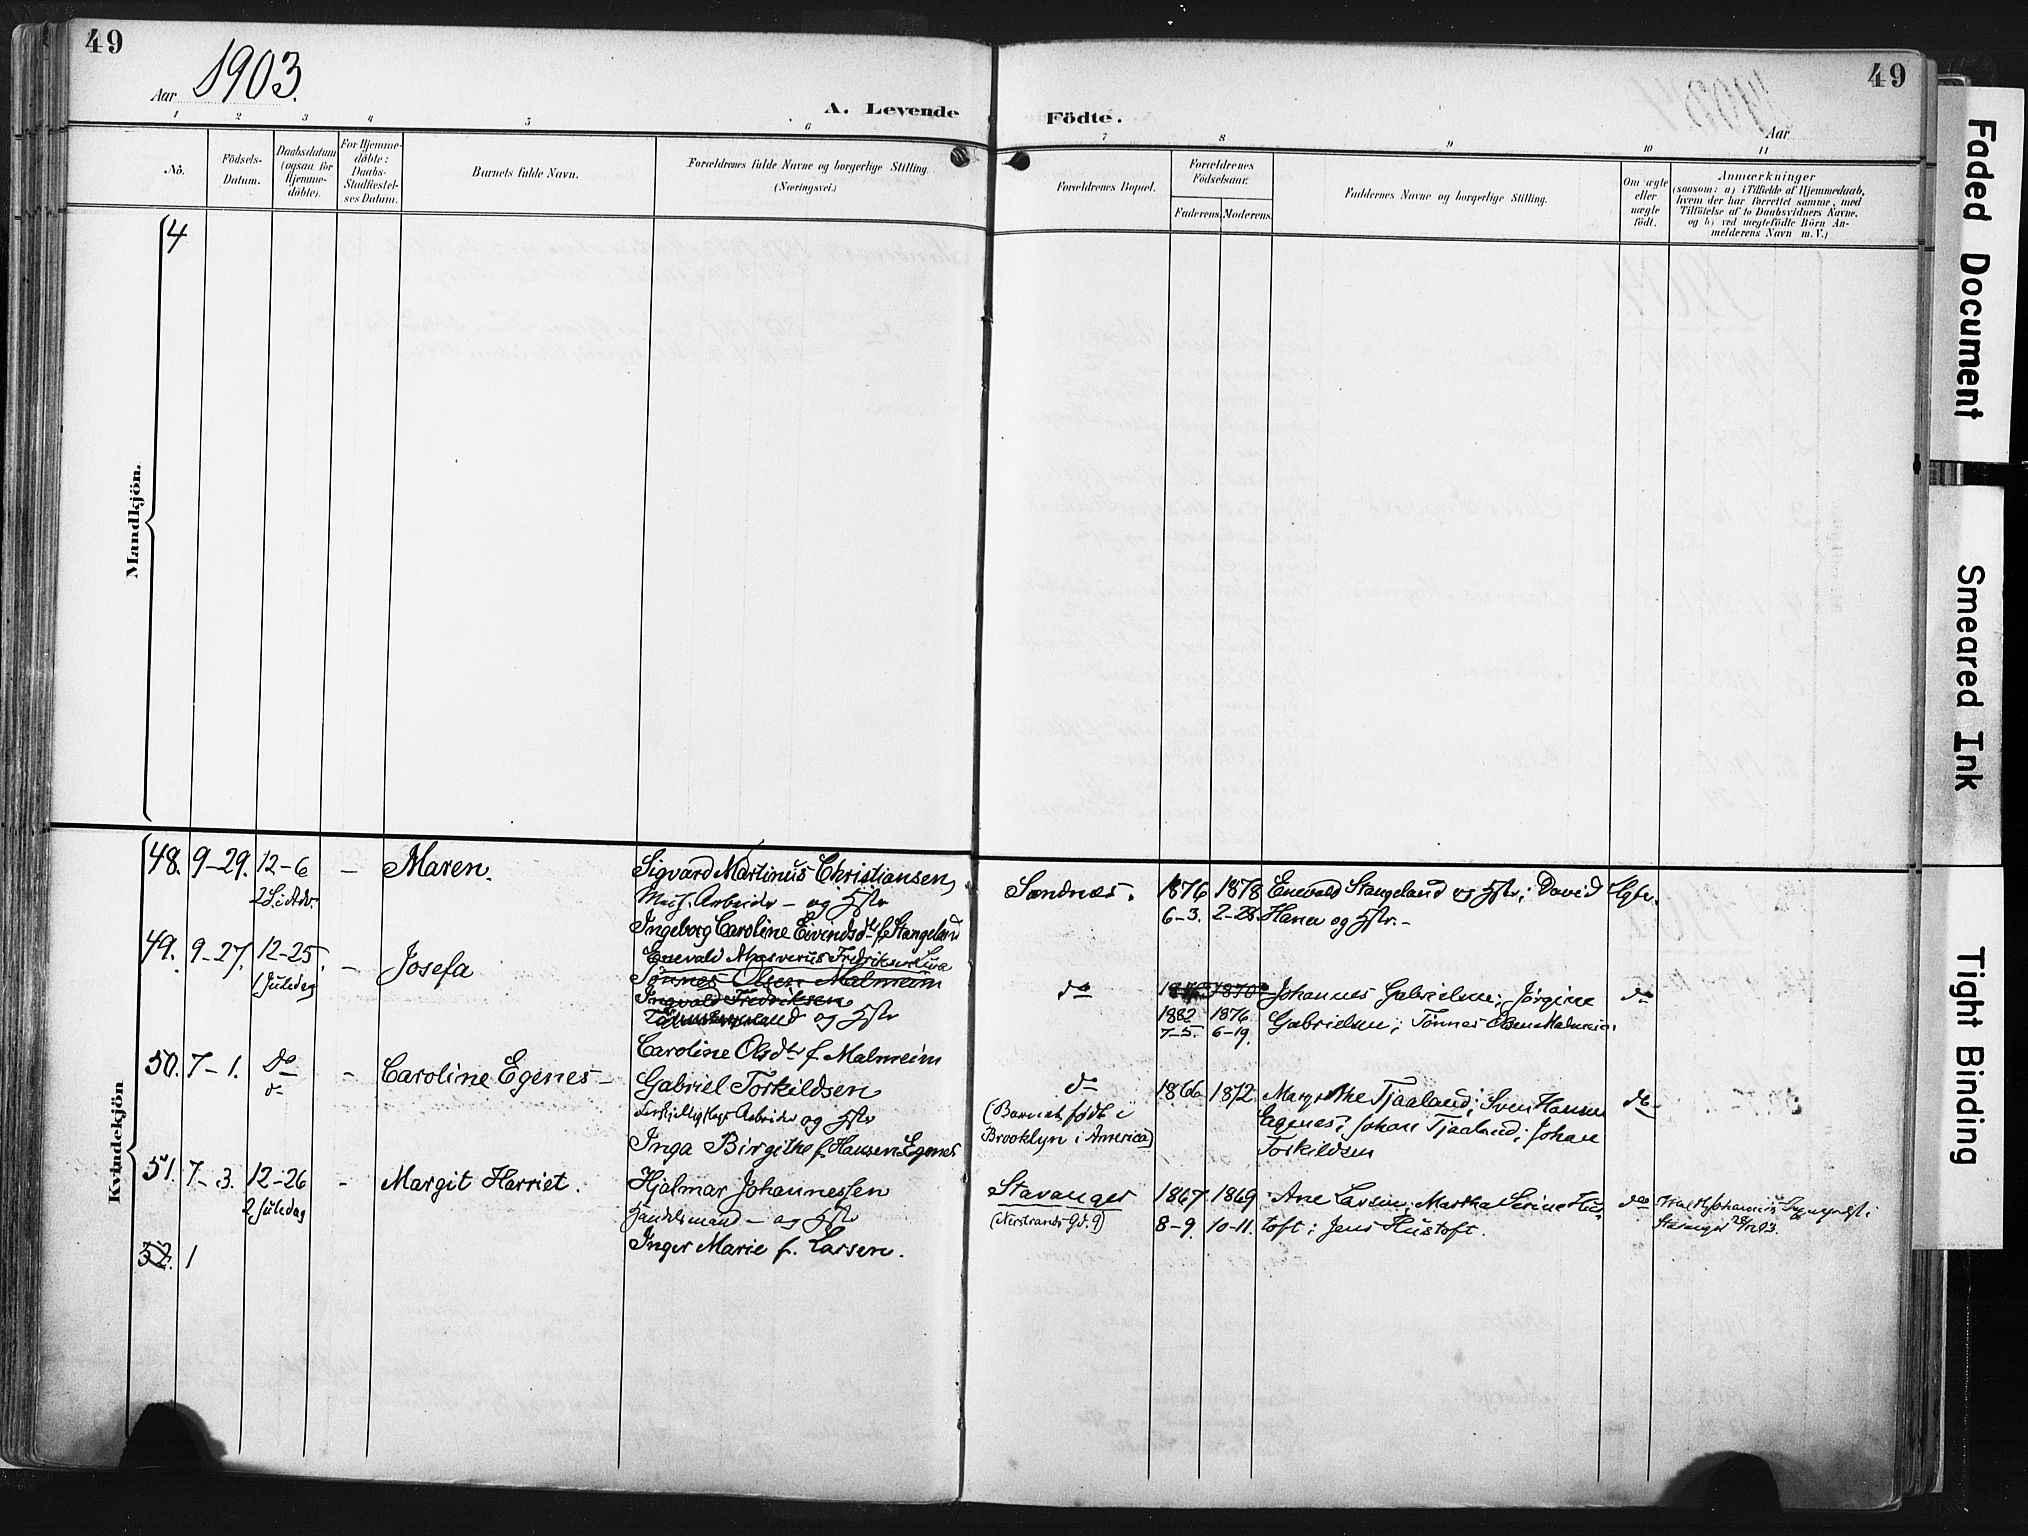 49
Aar 1903.
A. Levende
1 2 3 4 5 6
No.
Födsels-
Datum.
Daabsdatum
(ogsaa for
Hjemme-
döbte).
For Hjemme-
döbte:
Daabs-
Stadfæstel-
ses Datum.
Barnets fulde Navn.
Forældrenes fulde Navne og borgerlige Stilling.
(Næringsvei.)
Mandkjön.
4
Kvindekjön
48. 9-29. 12-6 - Maren.
2 S. i Adv.
Sigvard Martinus Christiansen,
Arbeider - og Hstr
Ingeborg Caroline Eivendsdtr f. Stangeland
49. 9-27. 12-25. - Josefa
1 Juledag
Enevald Fredriksen Lura
Tønnes Olsen Malmeim
Ingvald Fredriksen
og Hstr
Caroline Olsdtr f. Malmeim
50. 7-1. Do - Caroline Egenes -
do
Gabriel Torkildsen
Arbeider og Hstr
Inga Birgithe f. Hansen Egenes
51. 7-3. 12-26 - Margit Harriet.
2 Juledag
Hjalmar Johannessen
Handelsmand - og Hstr
Inger Marie f. Larsen.
52. 1
49
Födte.
Aar
7 8 9 10 11
Forældrenes Bopæl.
Forældrenes
Födselsaar.
Faderens. Moderens.
Faddernes Navne og borgerlige Stilling.
Om ægte
eller
uægte
födt.
Anmærkninger
(saasom: a) i Tilfælde af Hjemmedaab,
hvem der har forrettet samme, med
Tilföielse af to Daabsvidners Navne.
og b) ved uægtefödte Börn An-
melderens Navn m. V.)
Sandnæs. 1876 1878 Enevald Stangeland og Hstr; David
6-3. 2-28. Hana og Hstr. -
do 1870 Johannes Gabrielsen; Jørgine do
1882 1876 Gabrielsen; Tønnes Olsen Malmeim.
7-5. 6-19.
do 1866 1872. Tjaaland; Sven Hansen do
(Barnet født i
Egenes; Johan Tjaaland; Johan
Brooklyn i America)
Torkildsen
Stavanger 1867 1869 Ane Larsen; Martha Serine Hus- do
(Nerstrands Gd. 9) 8-9. 10-11. toft; Jens Hustoft.
Stavanger
Faded Document
Smeared Ink
Tight Binding